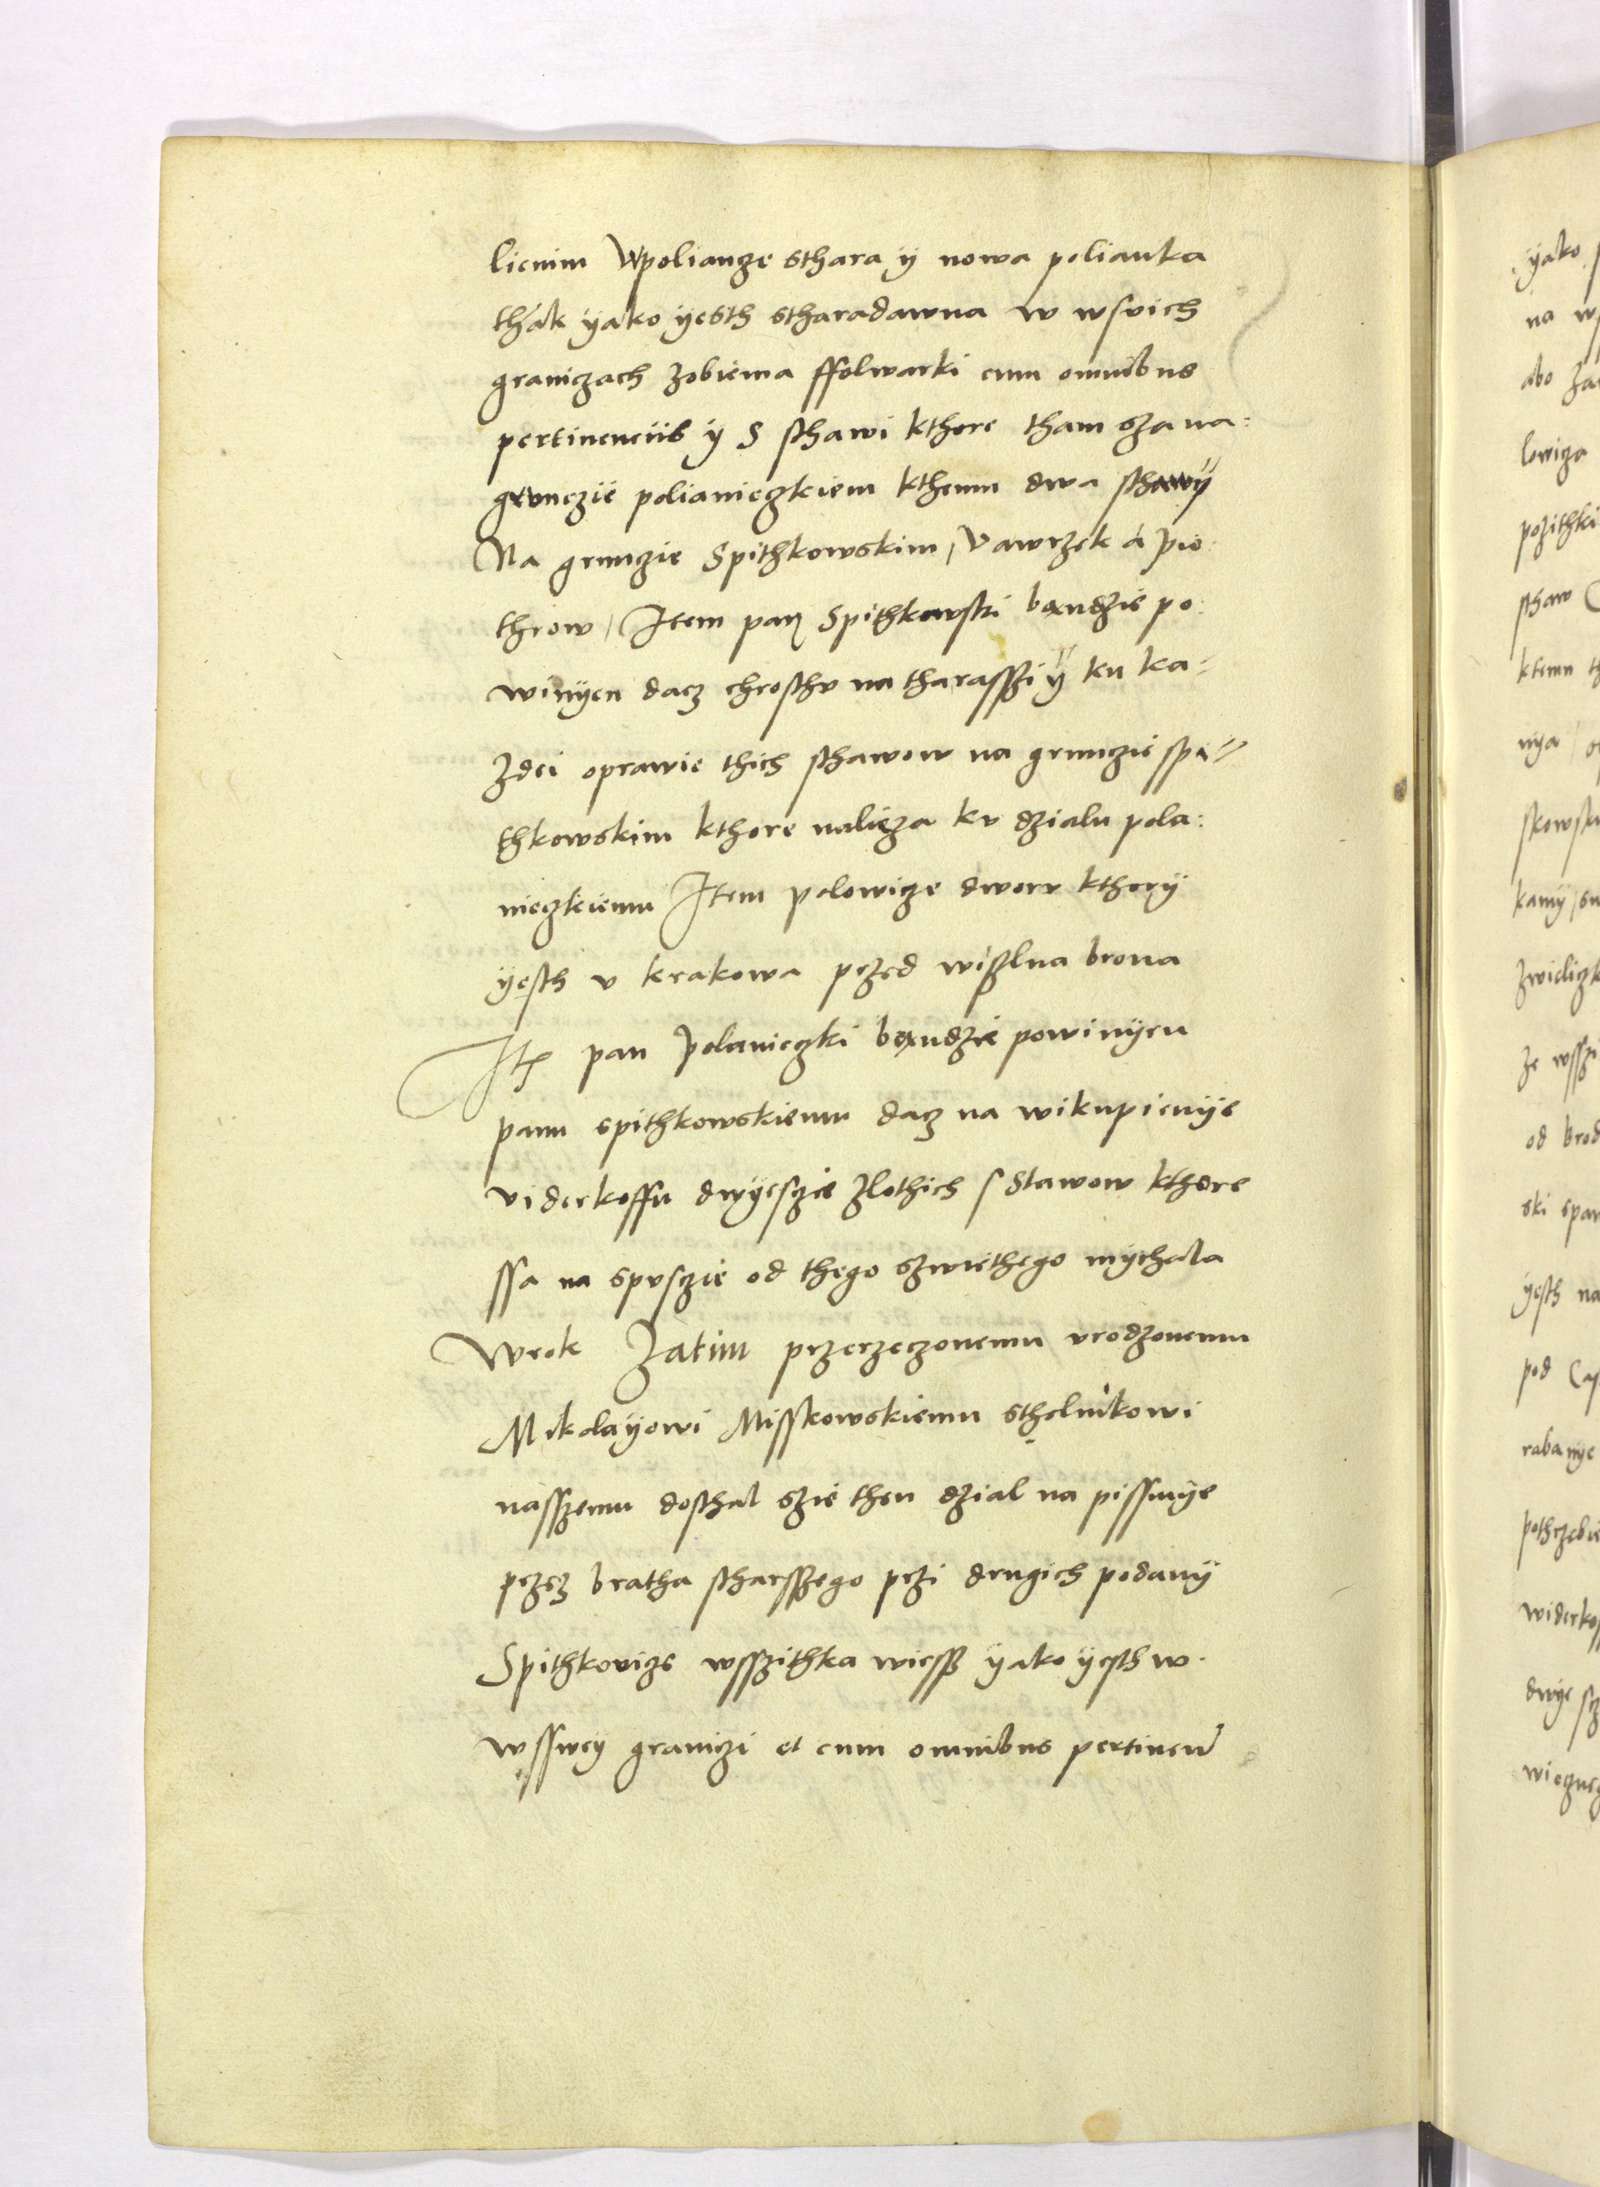 lienim Wpoliancze sthara ÿ nowa polianka
thák ÿako ÿesth stharadawna w wsvich
graniczach zobiema ffolwarki cum omnibus
pertinenciis ÿ S sthawi kthore tham sza na:
grvnczie polianieczkiem kthemu dwa sthawÿ
Na grunczie Spithkowskim, Vawrzek á Pio
throw, Item pan Spithkowski bęndzie po
winÿen dacz chrosthv na tharassÿ ÿ ku ka:
zdei oprawie thich sthawow na grunczie spi
thkowskim kthore nalięza kv dzialu pola:
nieczkiemu Item polowicze dworv kthorÿ
ÿesth v krakowa przed wiszlna brona
Itẽ pan Polanieczki bęndzie powinÿen
panu spithkowskiemu dacz na wikupienÿe
viderkoffu dwÿesczie zlothich s Stawow kthore
ssa na spvsczie od thego szwiethego mÿchala
Wrok Zatim przerzeczonemu vrodzonemu
Mikolaÿowi Misskowskiemu stholnikowi
nasszemu dosthal szie then dzial na pissmÿe
przez bratha starsszego przi drugich podanÿ
Spithkovicze wsszithka wiessz ÿako ÿesth w
wsswey graniczi et cum omnibus pertinen
ÿako
na
abo
lowiza
pozithki
sthaw
ktemu
nÿa
skowsk
kamÿ
zwieliczk
ze wssz
od brod
ski span
ÿesth na
pod
rabanÿe
pothrzebie
widerkof
dwÿe
wieczneg